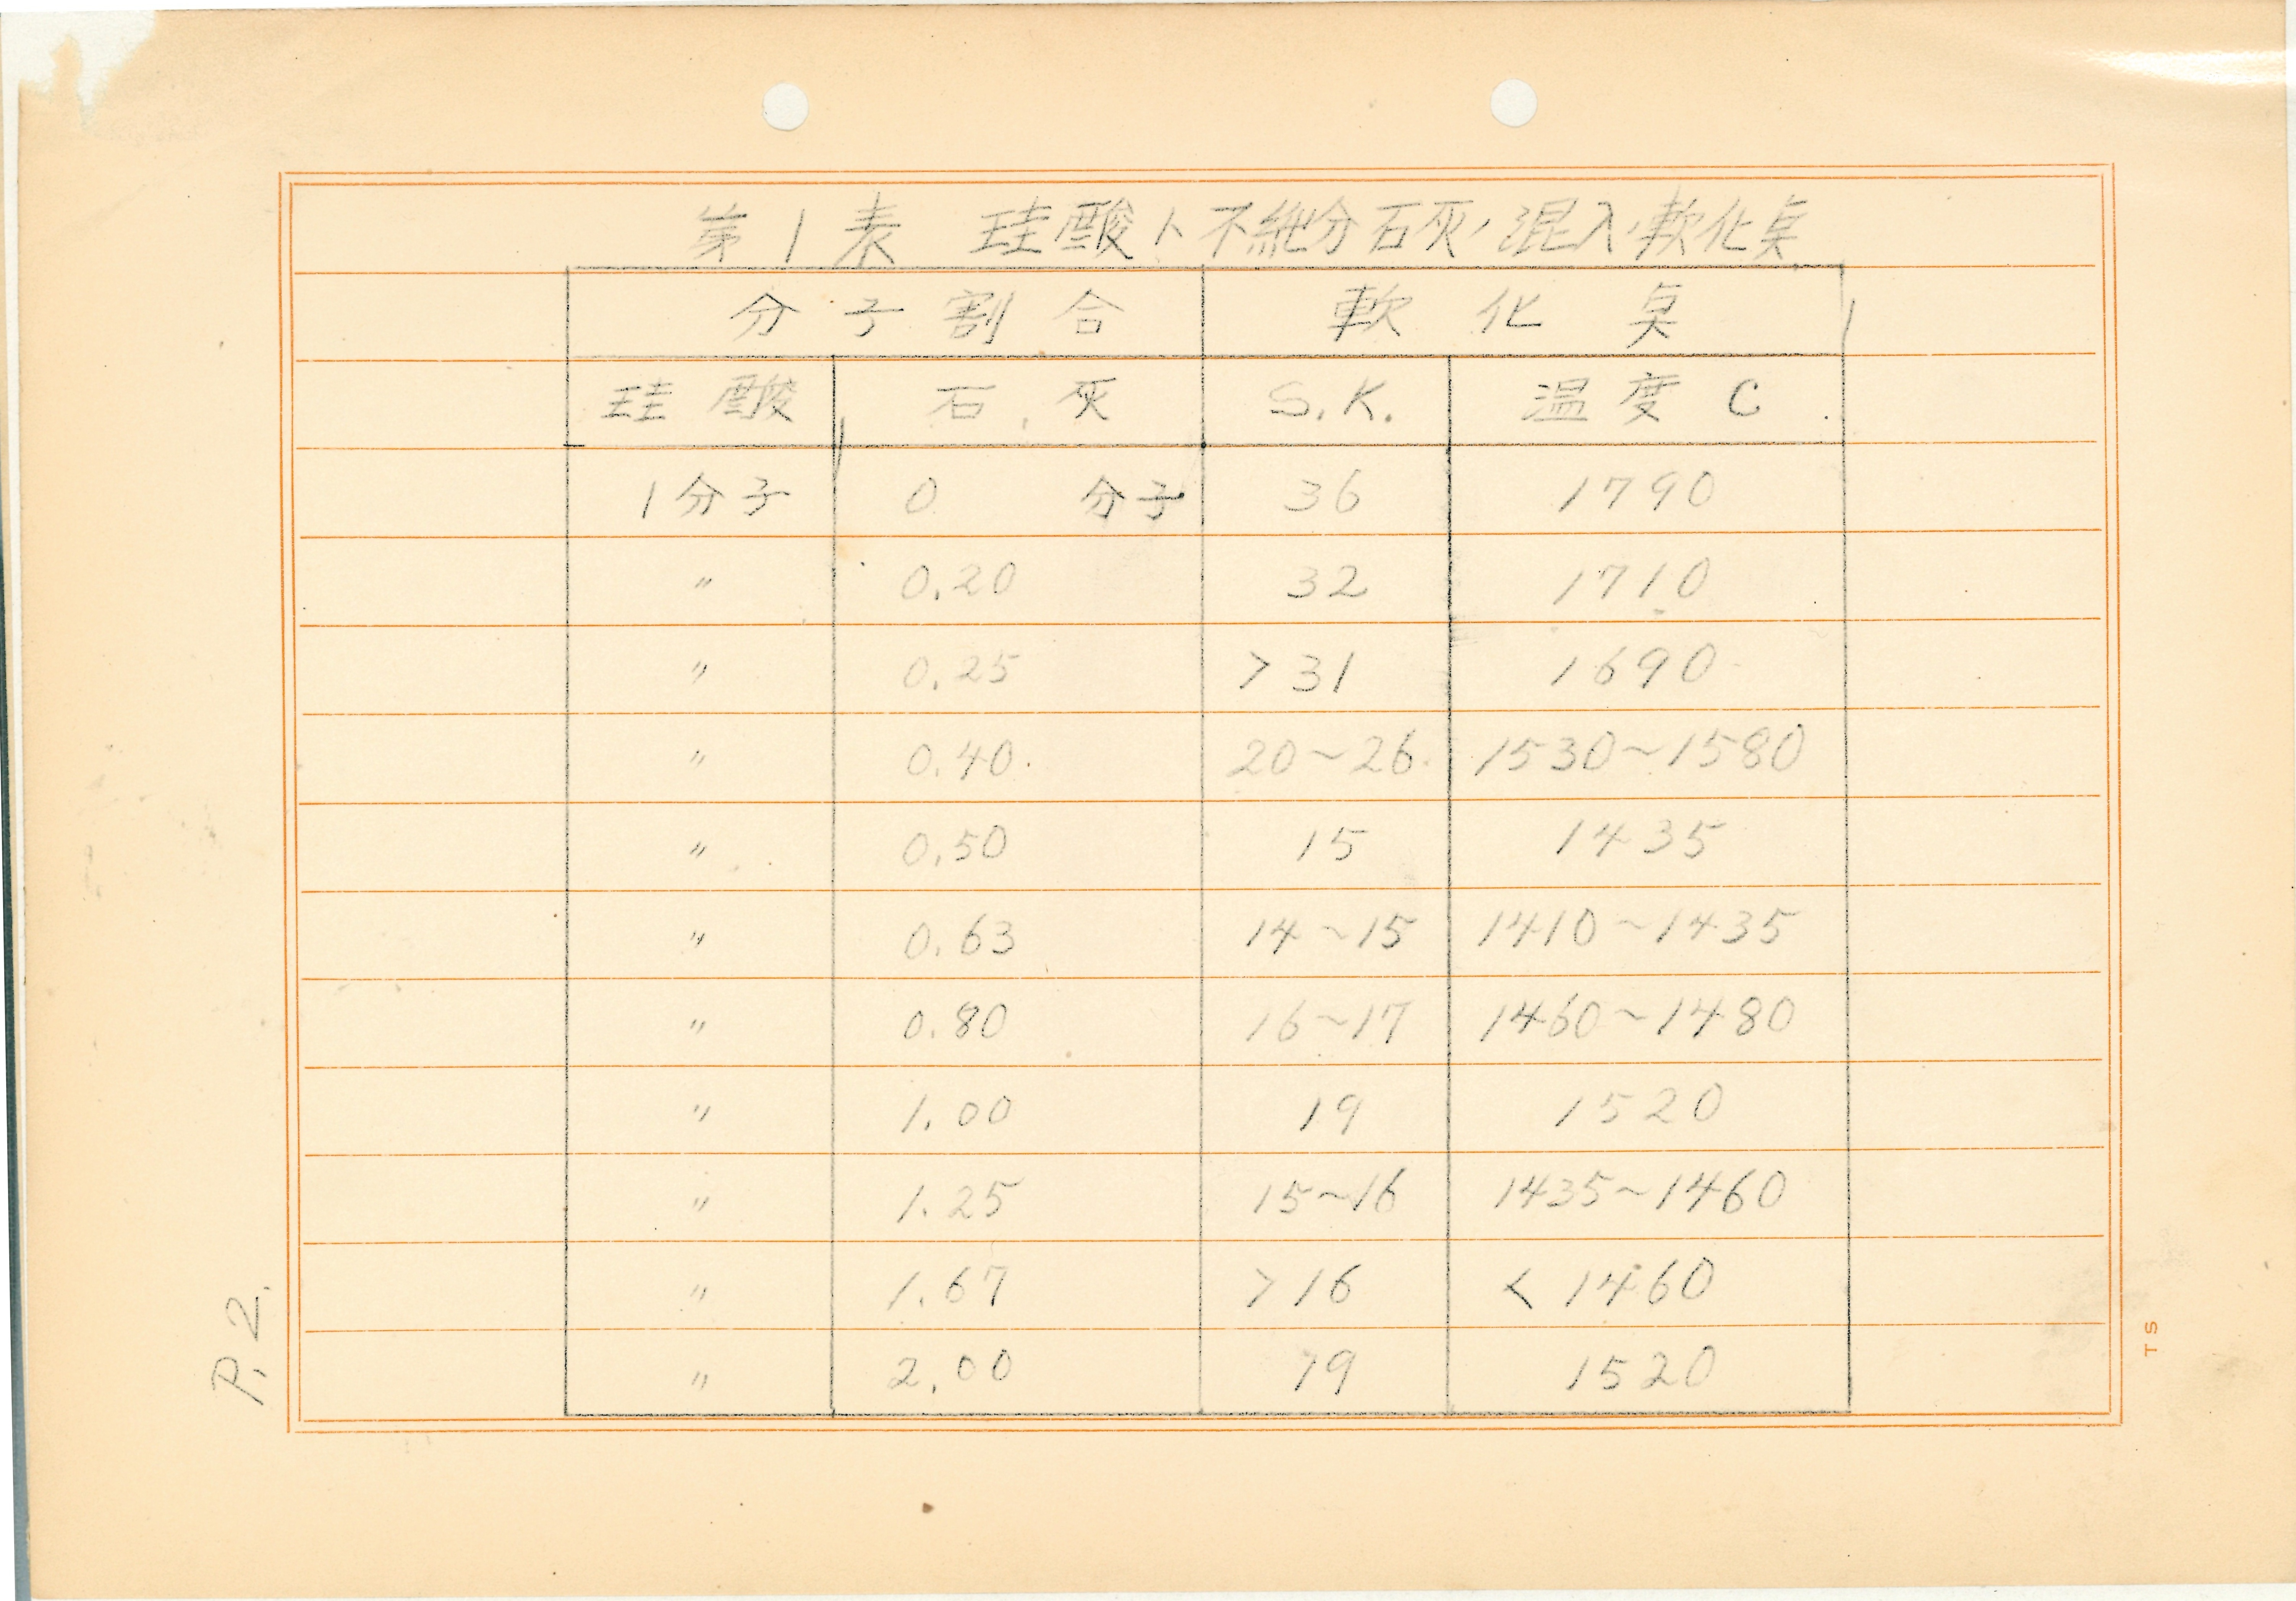 第1表 珪酸ト不純分石灰ノ混入ノ軟化点
分子割合 軟化点
珪酸 石灰 S.K. 温度 C
1分子 0 分子 36 1790
〃 0.20 32 1710
〃 0.25 >31 1690
〃 0.40. 20~26 1530~1580
〃 0.50 15 1435
〃 0.63 14~15 1410~1435
〃 0.80 16~17 1460~1480
〃 1.00 19 1520
〃 1.25 15~16 1435~1460
〃 1.67 >16 <1460
〃 2.00 19 1520
P.2.
TS